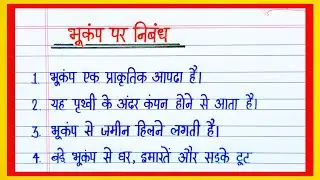 भूकंप पर निबंध
1. भूकंप एक प्राकृतिक आपदा है।
2. यह पृथ्वी के अंदर कंपन होने से आता है।
3. भूकंप से जमीन हिलने लगती है।
4. बड़े भूकंप से घर, इमारतें और सड़के टूट